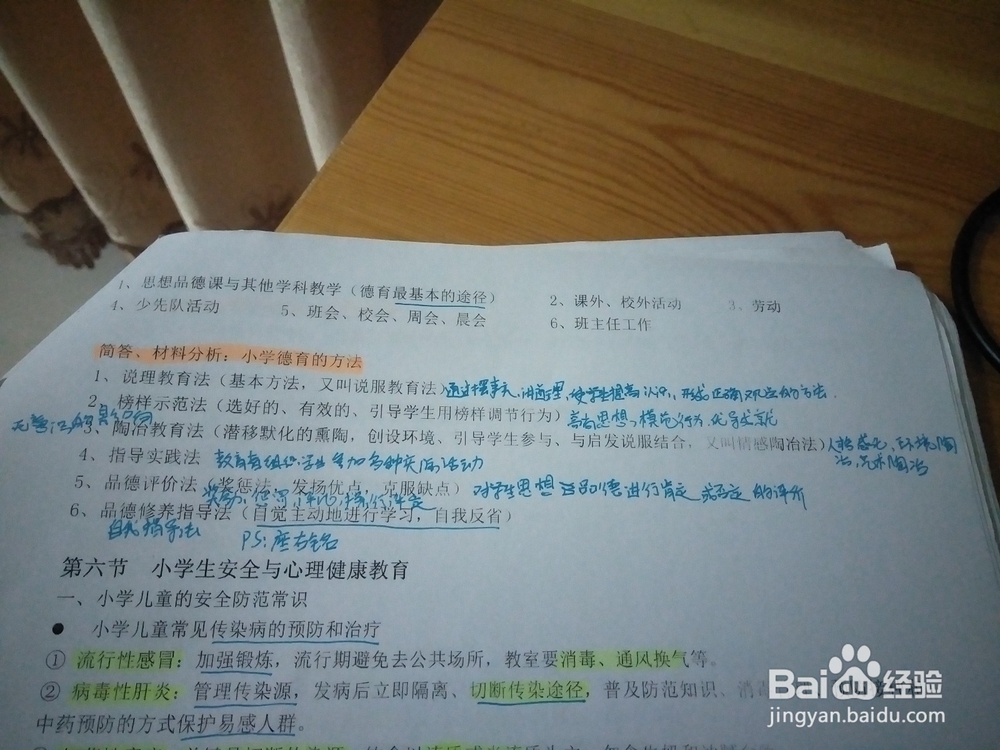 1、思想品德课与其他学科教学（德育最基本的途径）  2、课外、校外活动  3、劳动
4、少先队活动  5、班会、校会、周会、晨会  6、班主任工作
简答、材料分析：小学德育的方法
1、说理教育法（基本方法，又叫说服教育法）通过摆事实，讲道理，使学生提高认识，形成正确观点的方法.
2、榜样示范法（选好的、有效的、引导学生用榜样调节行为）思想、模范行为、优异成就
3、陶冶教育法（潜移默化的熏陶，创设环境、引导学生参与、与启发说服结合，又叫情感陶冶法）人格感化、环境陶
冶、艺术陶冶
4、指导实践法 教育者组织学生参加多种实际活动
5、品德评价法（奖惩法，发扬优点，克服缺点）对学生思想品德进行肯定或否定的评价
奖励、惩罚、评比、操行评定
6、品德修养指导法（自觉主动地进行学习，自我反省）
自我指导法  PS：座右铭
第六节 小学生安全与心理健康教育
一、小学儿童的安全防范常识
● 小学儿童常见传染病的预防和治疗
① 流行性感冒：加强锻炼，流行期避免去公共场所，教室要消毒、通风换气等。
② 病毒性肝炎：管理传染源，发病后立即隔离、切断传染途径，普及防范知识、消毒
中药预防的方式保护易感人群。
Baidu经验
jingyan.baidu.com